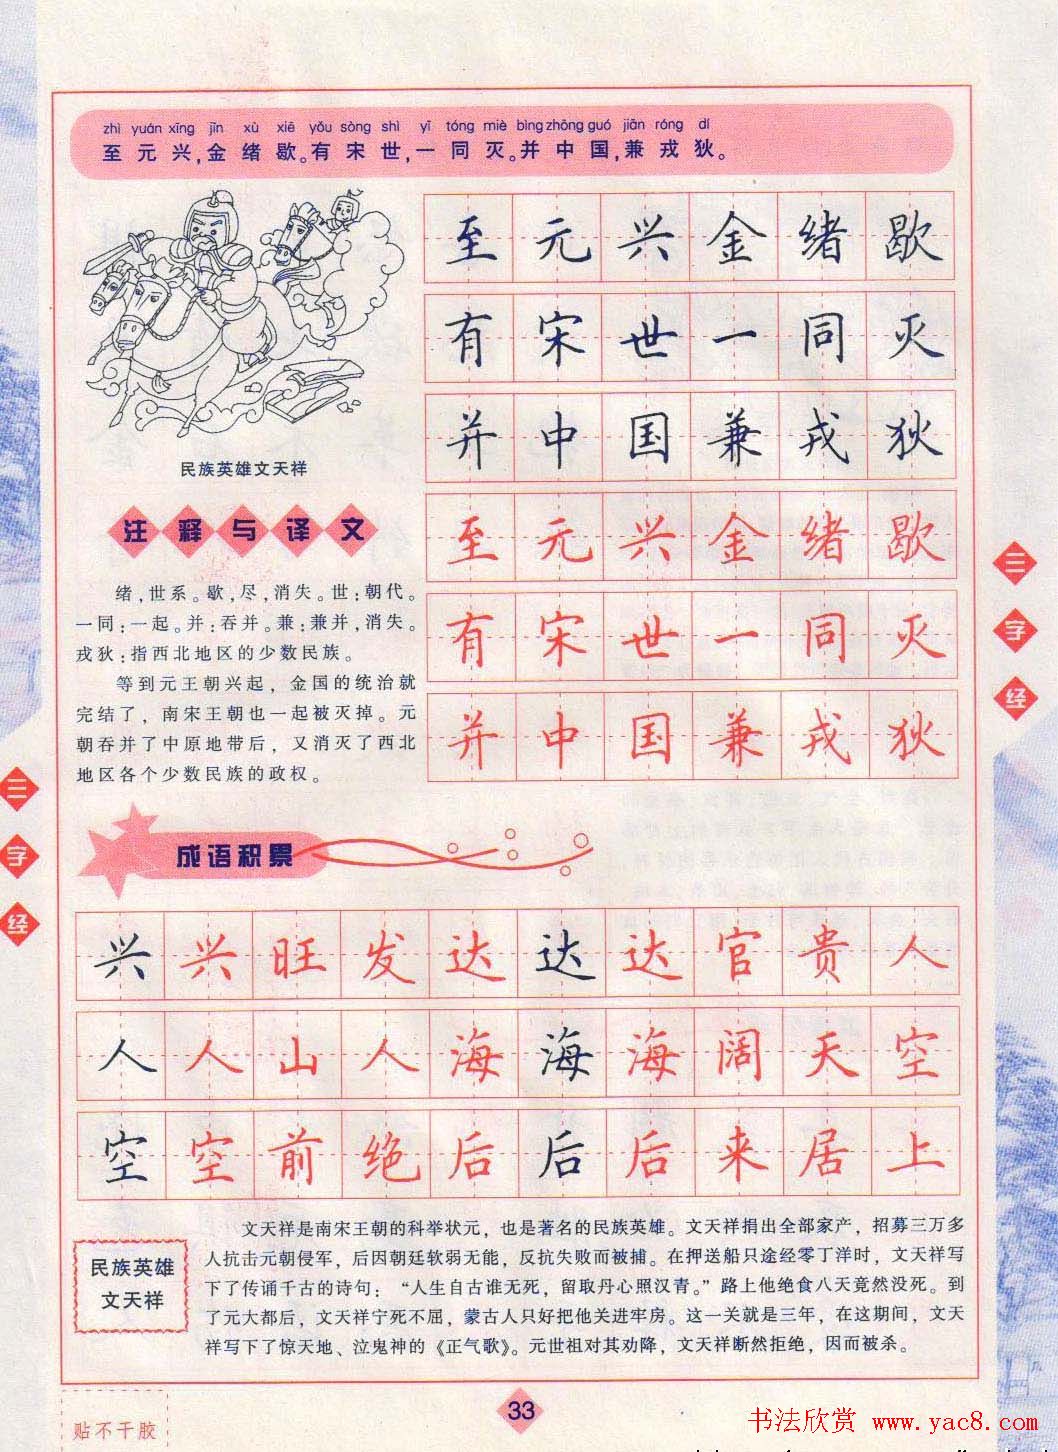 zhì yuán xīng jīn xù xiē yǒu sòng shì yī tóng miè bìng zhōng guó jiān róng dí
至元兴,金绪歇。有宋世,一同灭。并中国,兼戎狄。
至元兴金绪歇
有宋世一同灭
并中国兼戎狄
至元兴金绪歇
有宋世一同灭
并中国兼戎狄
民族英雄文天祥
注释与译文
绪,世系。歇,尽,消失。世:朝代。
一同:一起。并:吞并。兼:兼并,消失。
戎狄:指西北地区的少数民族。
等到元王朝兴起,金国的统治就
完结了,南宋王朝也一起被灭掉。元
朝吞并了中原地带后,又消灭了西北
地区各个少数民族的政权。
三字经
三字经
成语积累
兴兴旺发达达达官贵人
人人山人海海海阔天空
空空前绝后后后来居上
民族英雄
文天祥
文天祥是南宋王朝的科举状元,也是著名的民族英雄。文天祥捐出全部家产,招募三万多
人抗击元朝侵军,后因朝廷软弱无能,反抗失败而被捕。在押送船只途经零丁洋时,文天祥写
下了传诵千古的诗句:“人生自古谁无死,留取丹心照汗青。”路上他绝食八天竟然没死。到
了元大都后,文天祥宁死不屈,蒙古人只好把他关进牢房。这一关就是三年,在这期间,文天
祥写下了惊天地、泣鬼神的《正气歌》。元世祖对其劝降,文天祥断然拒绝,因而被杀。
33
贴不干胶
书法欣赏 www.yac8.com